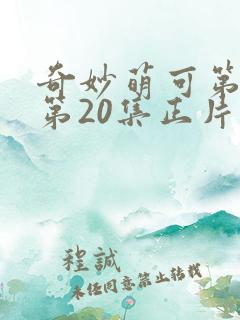 奇妙萌可第
第20集正片
程誠
未任同意禁止转载